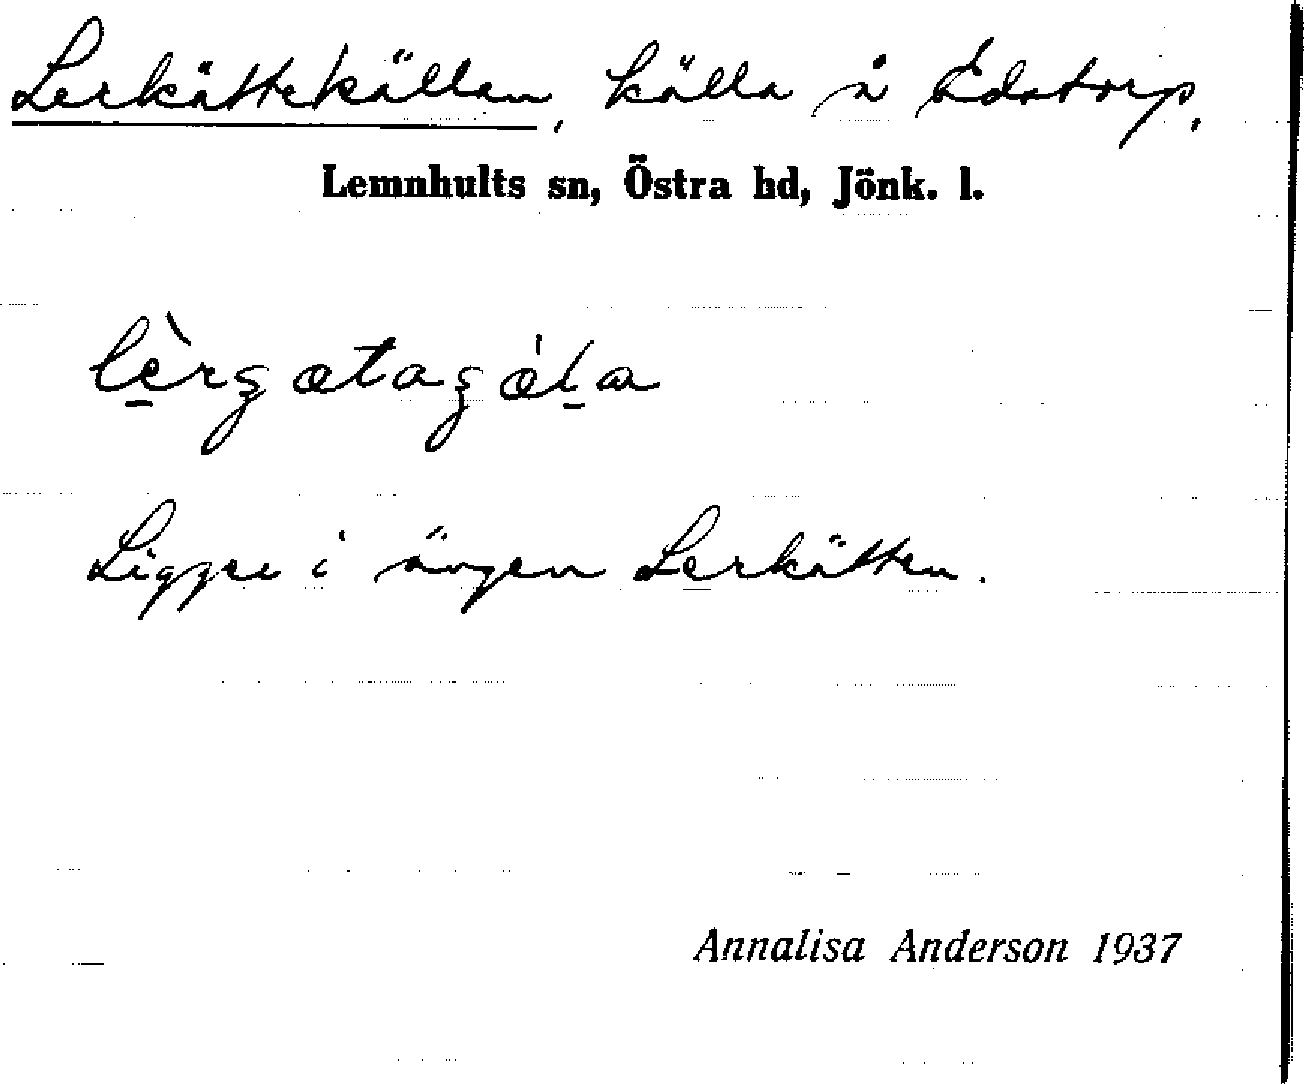 Lerkättekällan, källa å Ädatorp,
Lemnhults sn, Östra hd, Jönk. l.
Ligger i ängen Lerkätten.
Annalisa Anderson 1937